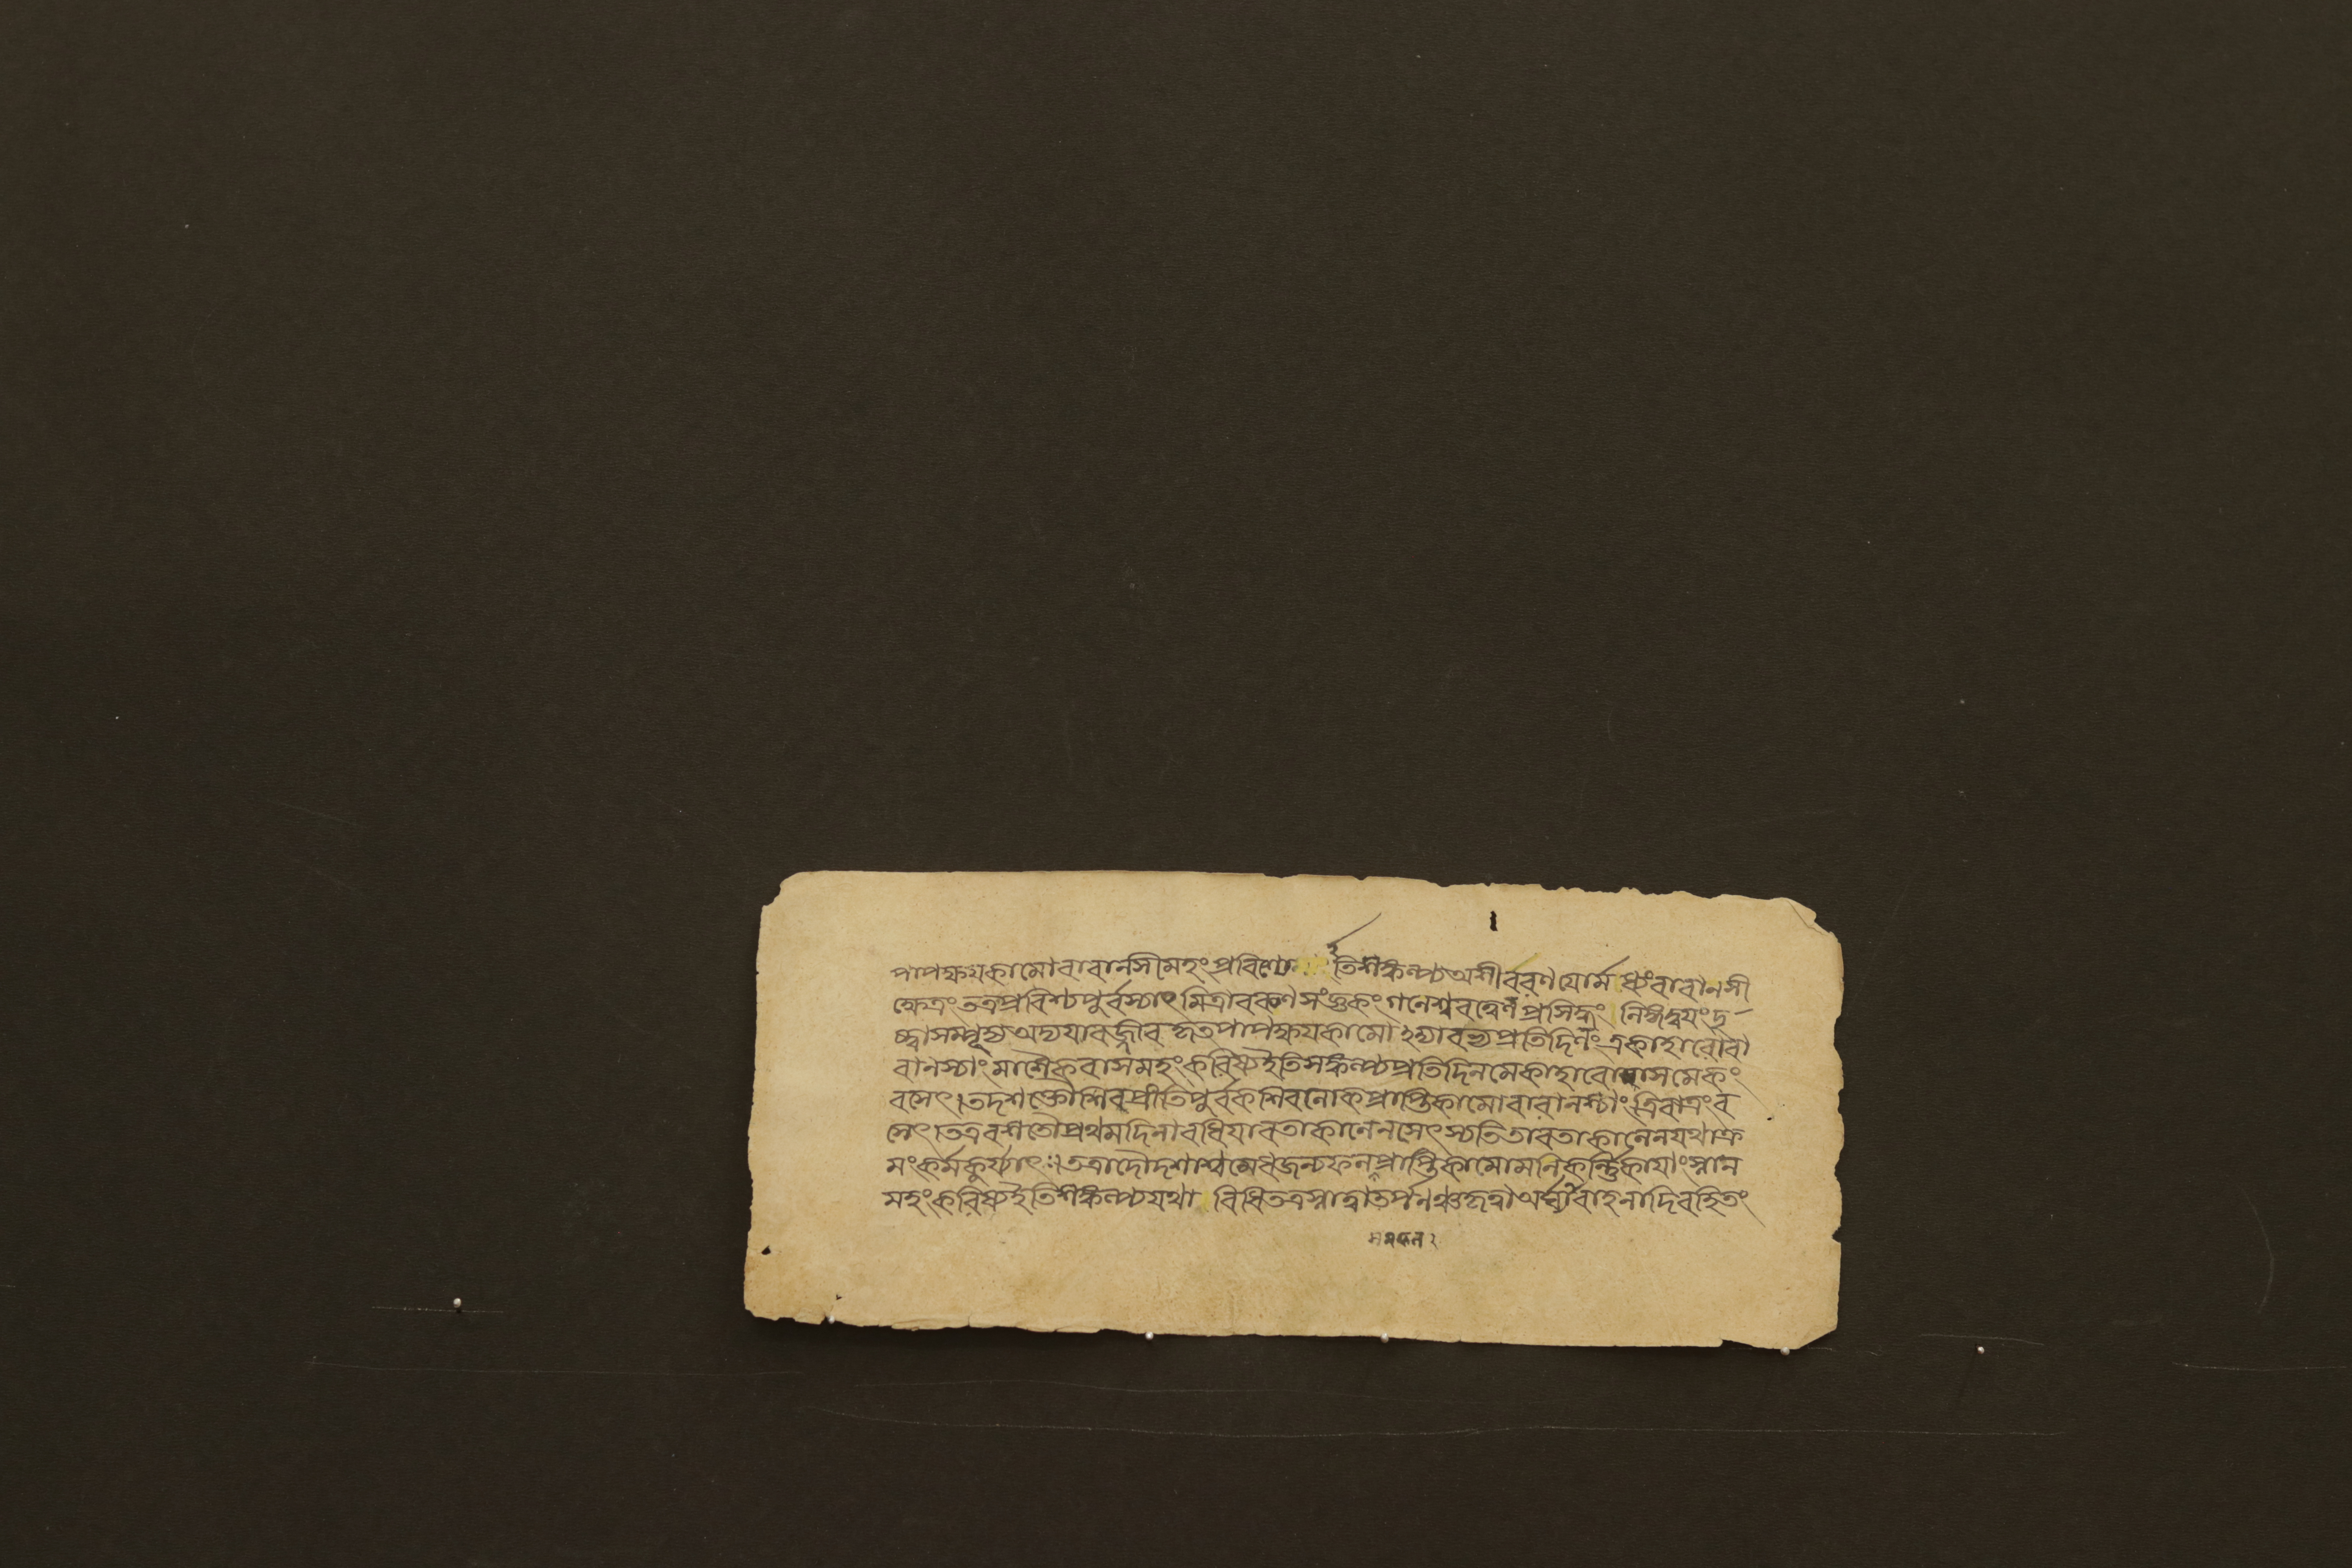 পাপক্ষয়কামোবারানসীমহংপ্রবিশ্যে তিশঙ্কল্প্যঅশীবরণযোর্মধ্যংবারানসী
ক্ষেত্রংতত্রপ্রবিশ্যপুর্বস্যাংমিত্রাবরুণসংজ্ঞকংগনেশ্বরত্বেনপ্রসিদ্ধং লিঙ্গদ্বয়ংদৃ
ষ্ট্বাসম্পূজ্যঅদ্যযাবজ্জীবকৃতপাপক্ষয়কামোঽদ্যারভ্যপ্রতিদিনংএকাহারোবা
রানস্যাংমাশৈকবাসমহংকরিষ্যইতিসঙ্কল্প্যপ্রতিদিনমেকাহারোমাসমেকং
বসেৎ।তদশক্তৌশিবপ্রীতিপুর্বকশিবলোকপ্রাপ্তিকামোবারানশ্যাংত্রিরাত্রংব
সেৎ।তত্রবশতৌপ্রথমদিনাবধিযাবতাকালেনসেৎস্যতিতাবতাকালেনযথাক্র
মংকর্মকুর্য্যাৎ॥তত্রাদৌদশাশ্বমেধজন্যফলপ্রাপ্তিকামোমনিকর্ন্নিকাযাংস্নান
মহংকরিষ্যইতিশঙ্কল্প্যযথা বিধিতত্রস্নাত্বাতর্পনঞ্চকৃত্বাঅর্ঘ্যাবাহনাদিরহিতং